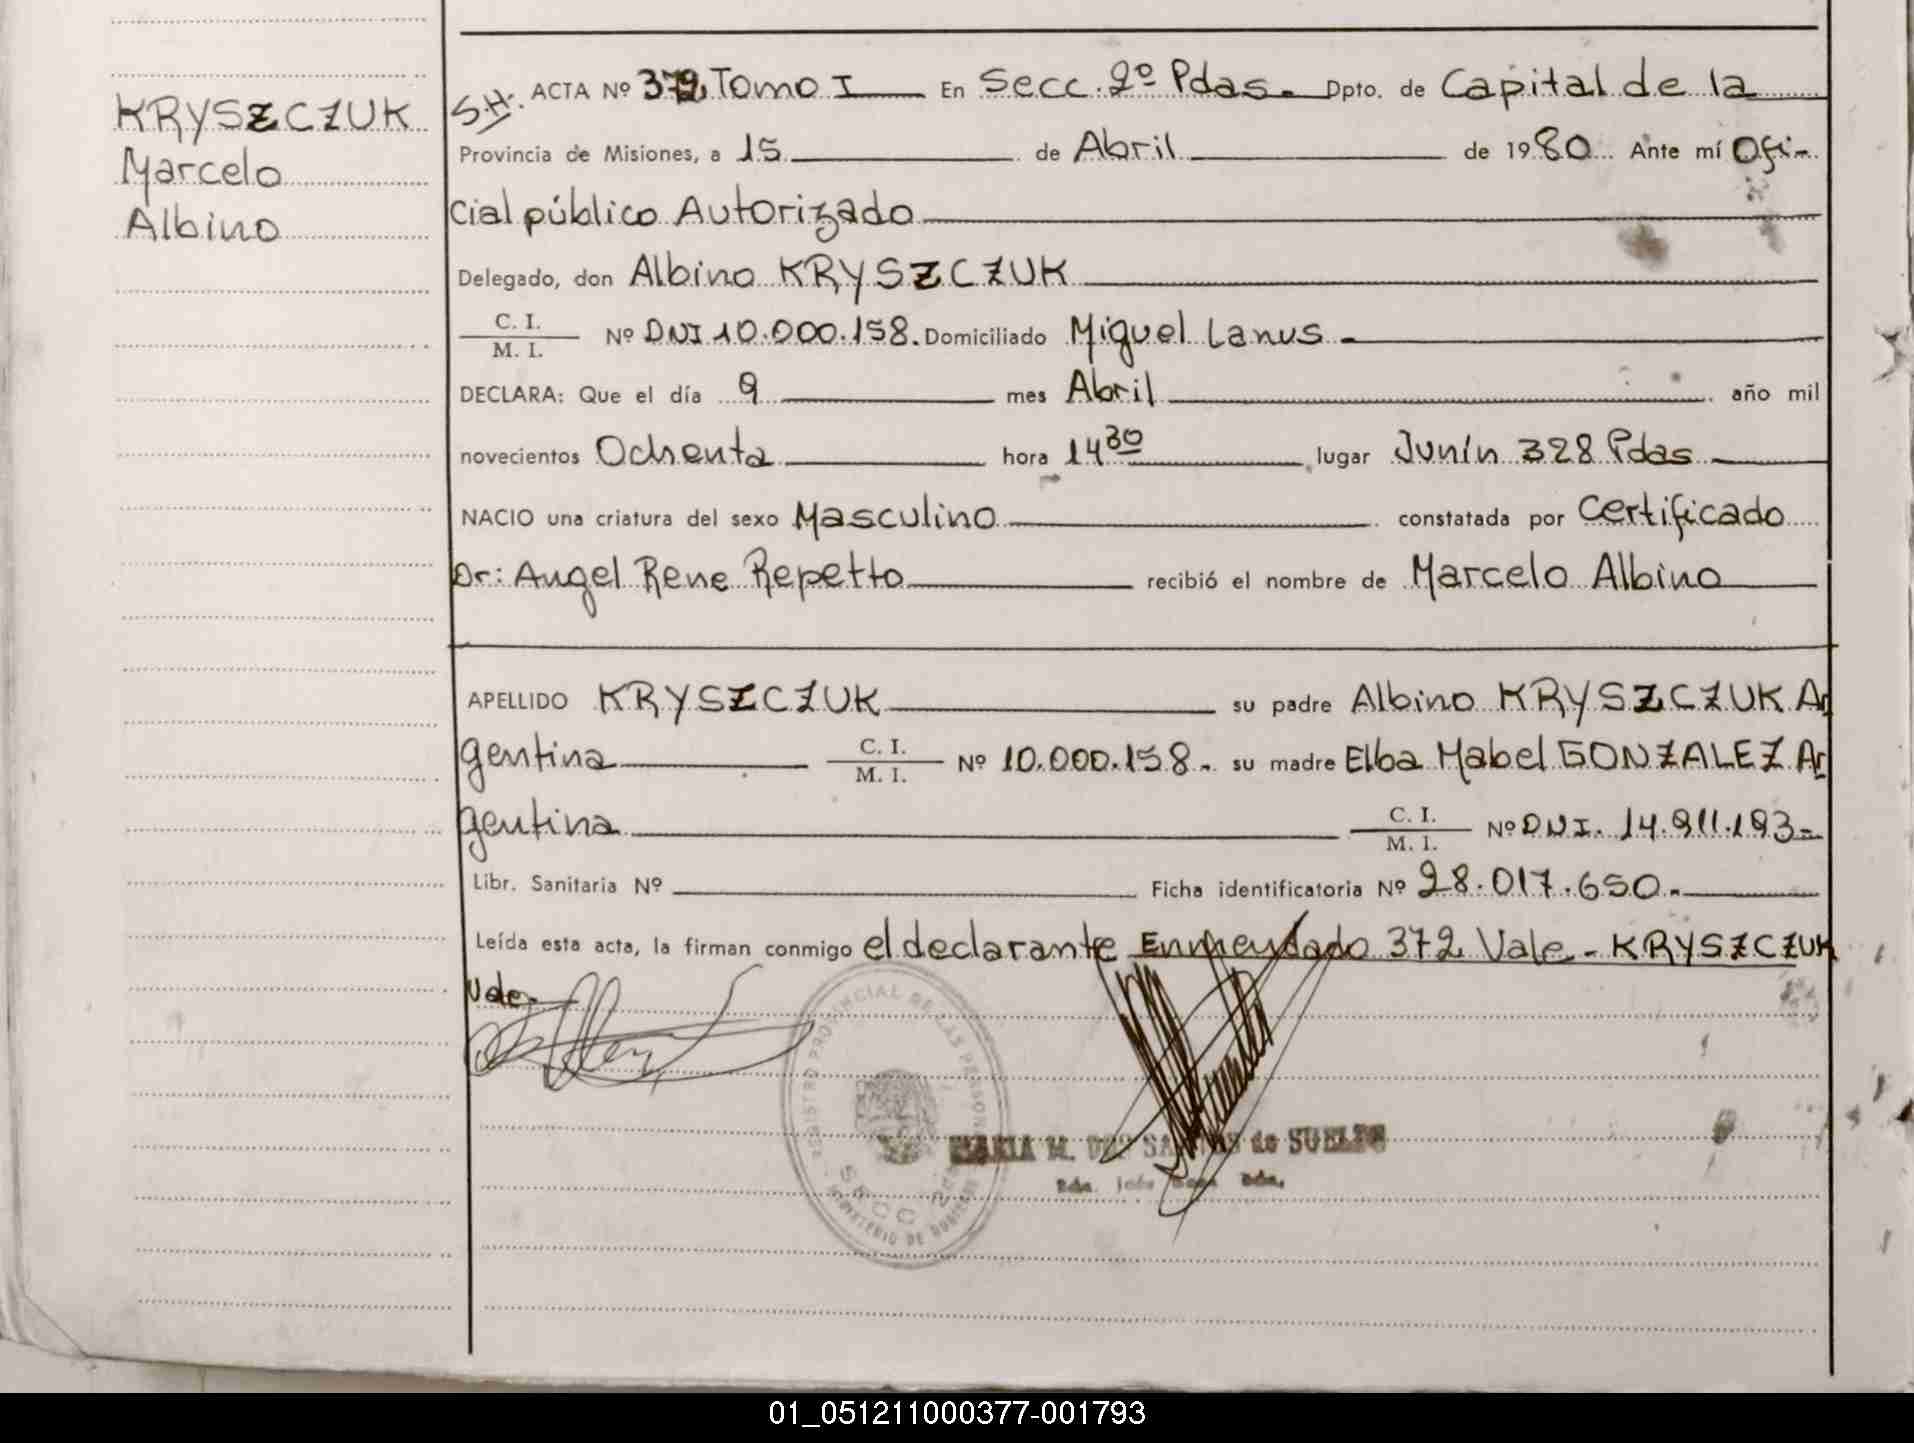 KRYSZCZUK
Marcelo
Albino
S.H. ACTA Nº 372 Tomo I En Secc. 2º Pdas. Dpto. de Capital de la
Provincia de Misiones, a 15 de Abril de 1980 Ante mí Ofi-
cial público Autorizado
Delegado, don Albino KRYSZCZUK
C. I.
M. I. Nº DNI 10.000.158. Domiciliado Miguel Lanus -
DECLARA: Que el día 9 mes Abril año mil
novecientos Ochenta hora 14 30 lugar Junín 328 Pdas
NACIO una criatura del sexo Masculino constatada por Certificado
Dr: Angel Rene Repetto recibió el nombre de Marcelo Albino
APELLIDO KRYSZCZUK su padre Albino KRYSZCZUK Ar
gentina C. I. M. I. Nº 10.000.158.- su madre Elba Mabel GONZALEZ Ar
gentina C. I. M. I. Nº DNI. 14.911.193-
Libr. Sanitaria Nº Ficha identificatoria Nº 28.017.650.-
Leída esta acta, la firman conmigo el declarante Enmendado 372 Vale - KRYSZCZUK
Vale-
REGISTRO PROVINCIAL DE LAS PERSONAS
SECC 2ª
MINISTERIO DE GOBIERNO
MARIA M. DOS SANTOS de
01_051211000377-001793